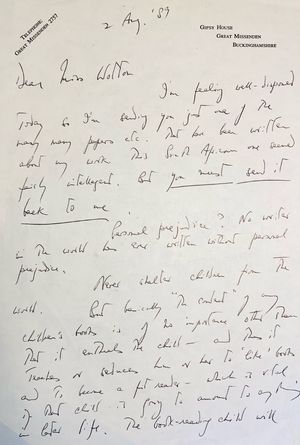 TELEPHONE:
GREAT MISSENDEN 2757
GIPSY HOUSE
GREAT MISSENDEN
BUCKINGHAMSHIRE
2 Aug. '89
Dear Miss Wotton
I'm feeling well-disposed
today so I'm sending you just one of the
many many papers etc. that has been written
about my work. This South African one seemed
fairly intelligent. But you must send it
back to me.
Personal prejudice? No writer
in the world has ever written without personal
prejudice.
Never shelter children from the
world.
But basically "the content" of any
children's book is of no importance other than
that it enthralls the child – and thus it
teaches or seduces him or her to "like" books
and to become a fit reader – which is vital
if that child is going to amount to anything
in later life. The book-reading child will